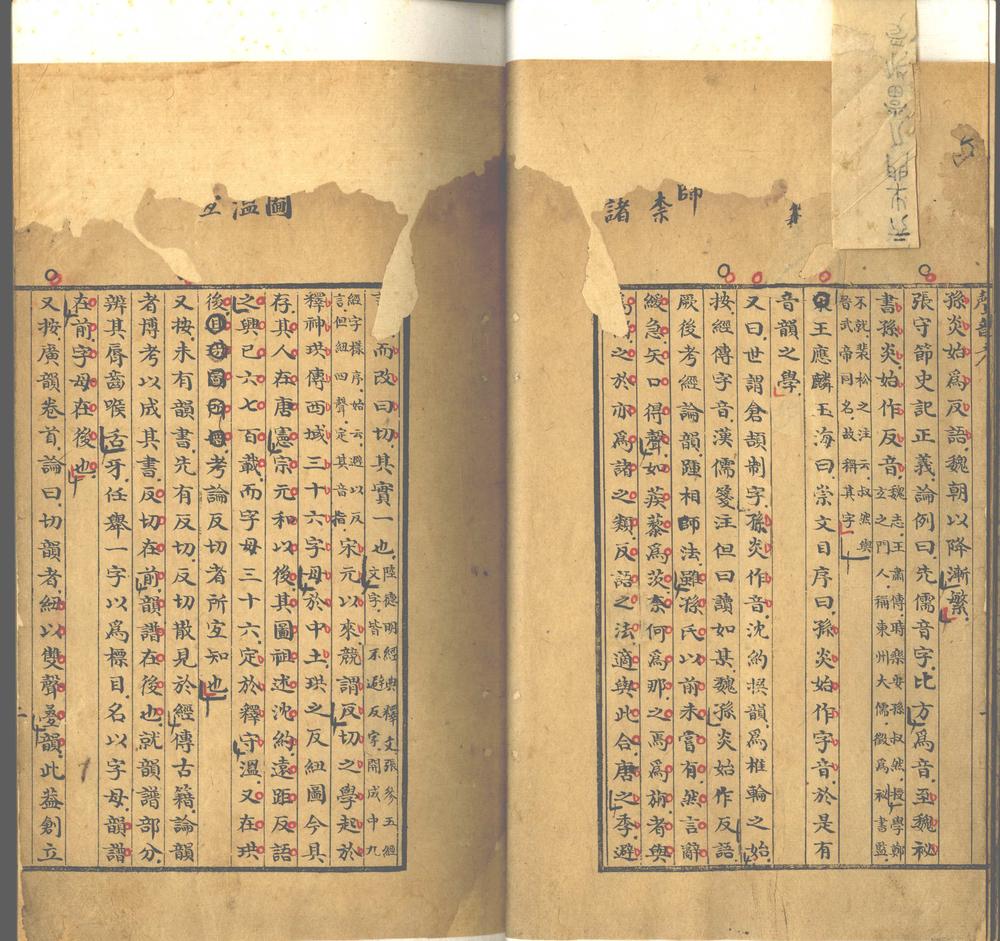 孫炎始爲反語魏朝以降漸繁
張守節史記正義論例曰先儒音字比方爲音至魏祕
書孫炎始作反音魏志王肅傳時樂安孫叔然授學鄭
玄之門人稱東州大儒徵爲祕書監
不就裴松之注云叔然與
晉武帝同名故稱其字
王應麟玉海曰崇文目序曰孫炎始作字音於是有
音韻之學
又曰世謂倉頡制字孫炎作音沈約撰韻爲椎輪之始
按經傳字音漢儒箋注但曰讀如某魏孫炎始作反語
厥後考經論韻踵相師法雖孫氏以前未嘗有然言辭
緩急矢口得聲如蒺藜爲茨奈何爲那之焉爲旃者與
之於亦爲諸之類反語之法適與此合唐之季避
師
柰
諸
而改曰切其實一也陸德明經典釋文張參五經
文字皆不避反字開成中九
經字樣序始云避以反
言但紐四聲定其音指宋元以來競謂反切之學起於
釋神珙傳西域三十六字母於中土珙之反紐圖今具
存其人在唐憲宗元和以後其圖祖述沈約遠距反語
之興已六七百載而字母三十六定於釋守溫又在珙
後考論反切者所宜知也
又按未有韻書先有反切反切散見於經傳古籍論韻
者博考以成其書反切在前韻譜在後也就韻譜部分
辨其脣齒喉舌牙任舉一字以爲標目名以字母韻譜
在前字母在後也
又按廣韻卷首論曰切韻者紐以雙聲疊韻此蓋創立
圖
溫